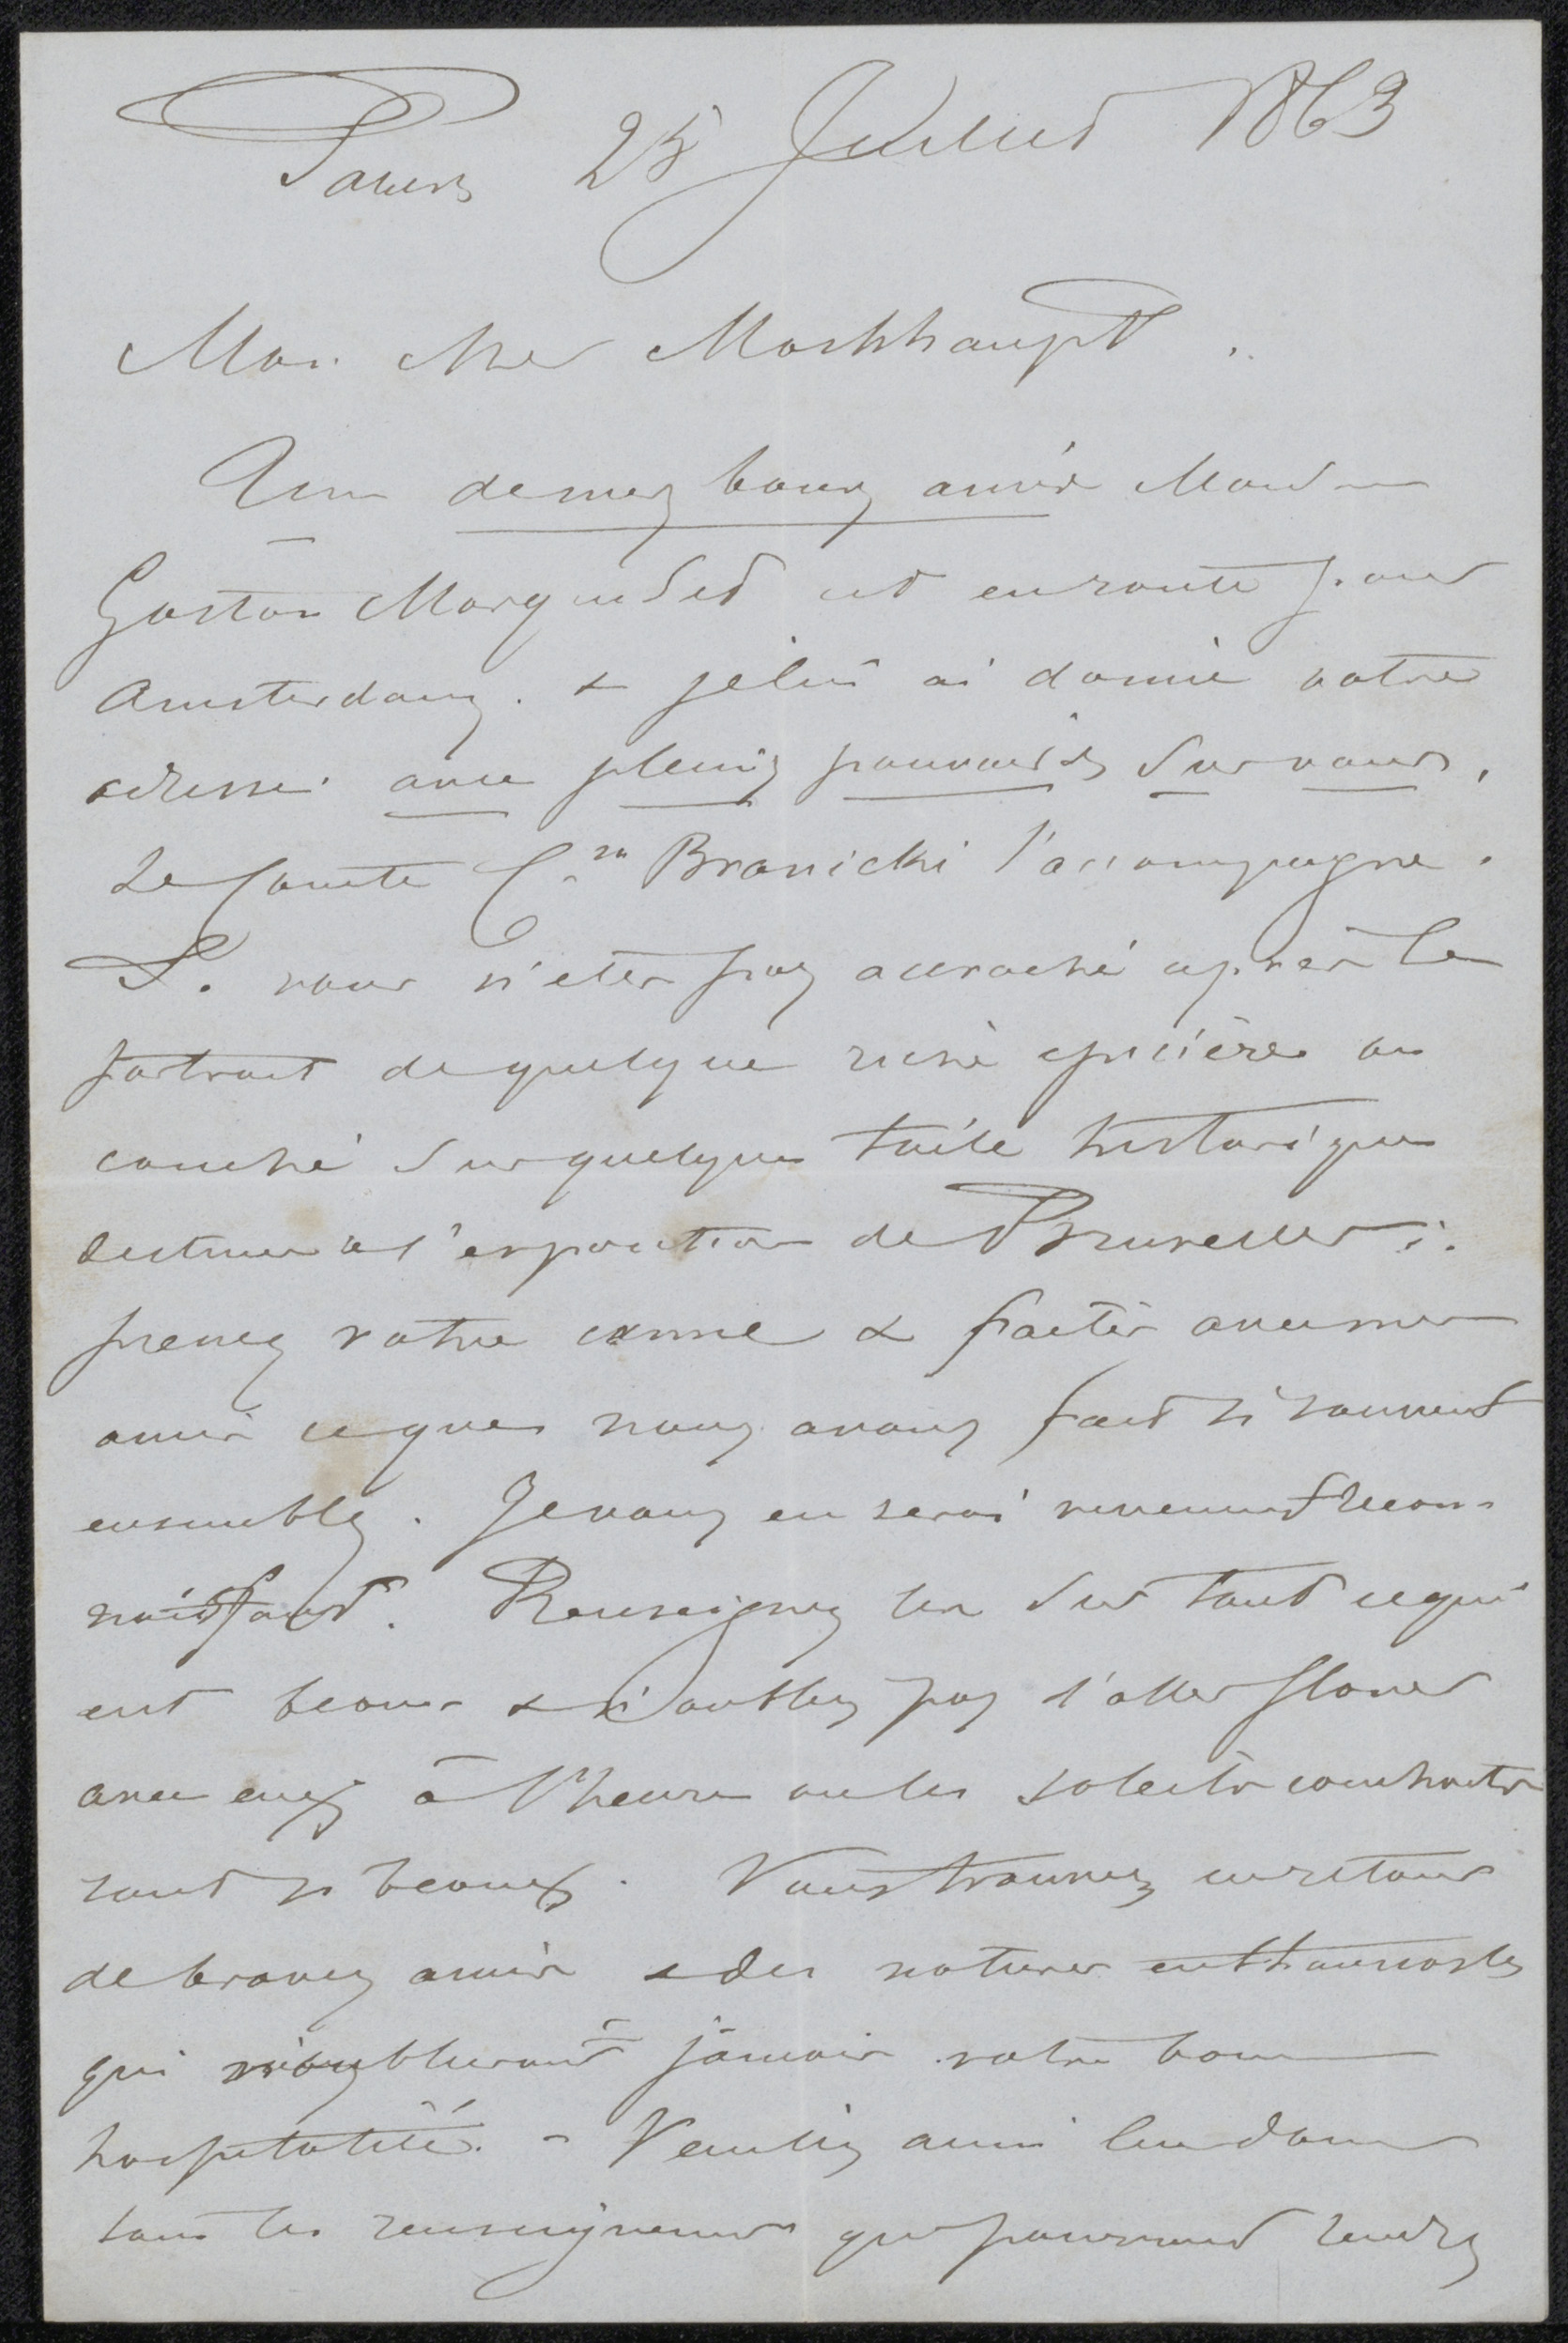 Paris 25 Juillet 1863
Mon cher Mockhaupt.
Un de mes bons amis Mons
Gaston est en route pour
Amsterdam. & je lui ai donné votre
adresse. avec pleins pouvoirs sur vous,
Le Comte C. Branicki l'accompagne.
Si vous n'etes pas accroché après le
portrait de quelque riche épicière ou
couché sur quelque toile historique
destinée à l'exposition de Bruxelles;
prenez votre canne & faites avec mes
amis ce que nous avons fait si souvent
ensemble. Je vous en serai recon-
naissant. Renseignez les sur tout ce qui
est beau & n'oubliez pas d'aller flaner
avec eux à l'heure ou les soleils couchants
sont si beaux. Vous trouverez en retour
de braves amis & des natures enthousiastes
qui n'oublieront jamais votre bonne
hospitalité. - Veuillez aussi leur donner
tous les renseignements qui pourront rendre